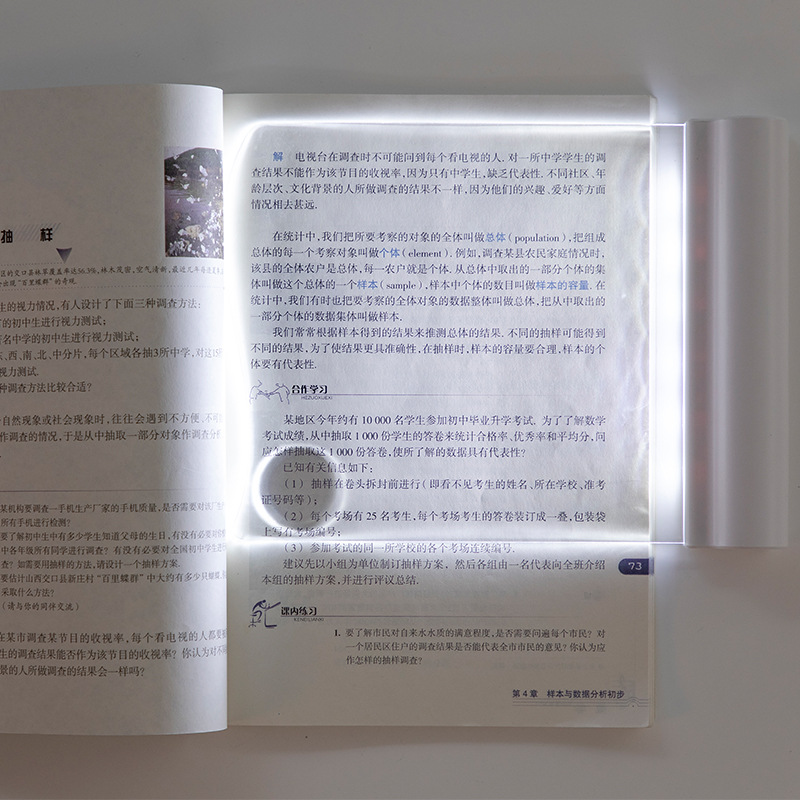 抽 样
区的交口县林草覆盖率达56.3%,林木茂密,空气清新,最近几年每逢夏
出现"百里蝶群"的奇观.
生的视力情况,有人设计了下面三种调查方法:
的初中生进行视力测试;
名中学的初中生进行视力测试;
东、西、南、北、中分片,每个区域各抽3所中学,对这15所
视力测试.
种调查方法比较合适?
自然现象或社会现象时,往往会遇到不方便、不可
作调查的情况,于是从中抽取一部分对象作调查分析
某机构要调查一手机生产厂家的手机质量,是否需要对该厂生产
所有手机进行检测?
要了解初中生中有多少学生知道父母的生日,有没有必要对
中各年级所有同学进行调查?有没有必要对全国初中学生进
查?如需要用抽样的方法,请设计一个抽样方案.
要估计山西交口县新庄村"百里蝶群"中大约有多少只蝴蝶,
采取什么方法?
(请与你的同伴交流)
在某市调查某节目的收视率,每个看电视的人都要
生的调查结果能否作为该节目的收视率?你认为对不同
景的人所做调查的结果会一样吗?
解 电视台在调查时不可能问到每个看电视的人.对一所中学学生的调
查结果不能作为该节目的收视率,因为只有中学生,缺乏代表性.不同社区、年
龄层次、文化背景的人所做调查的结果不一样,因为他们的兴趣、爱好等方面
情况相去甚远.
在统计中,我们把所要考察的对象的全体叫做总体(population),把组成
总体的每一个考察对象叫做个体(element).例如,调查某县农民家庭情况时,
该县的全体农户是总体,每一农户就是个体.从总体中取出的一部分个体的集
体叫做这个总体的一个样本(sample),样本中个体的数目叫做样本的容量.在
统计中,我们有时也把要考察的全体对象的数据整体叫做总体,把从中取出的
一部分个体的数据集体叫做样本.
我们常常根据样本得到的结果来推测总体的结果.不同的抽样可能得到
不同的结果,为了使结果更具准确性,在抽样时,样本的容量要合理,样本的个
体要有代表性.
合作学习
HEZUOXUEXI
某地区今年约有10 000名学生参加初中毕业升学考试.为了了解数学
考试成绩,从中抽取1 000份学生的答卷来统计合格率、优秀率和平均分,问
应怎样抽取这1 000份答卷,使所了解的数据具有代表性?
已知有关信息如下:
(1) 抽样在卷头拆封前进行(即看不见考生的姓名、所在学校、准考
证号码等);
(2) 每个考场有25名考生,每个考场考生的答卷装订成一叠,包装袋
上写有考场编号;
(3) 参加考试的同一所学校的各个考场连续编号.
建议先以小组为单位制订抽样方案,然后各组由一名代表向全班介绍
本组的抽样方案,并进行评议总结.
73
课内练习
KENEILIANXI
1. 要了解市民对自来水水质的满意程度,是否需要问遍每个市民?对
一个居民区住户的调查结果是否能代表全市市民的意见?你认为应
作怎样的抽样调查?
第4章 样本与数据分析初步